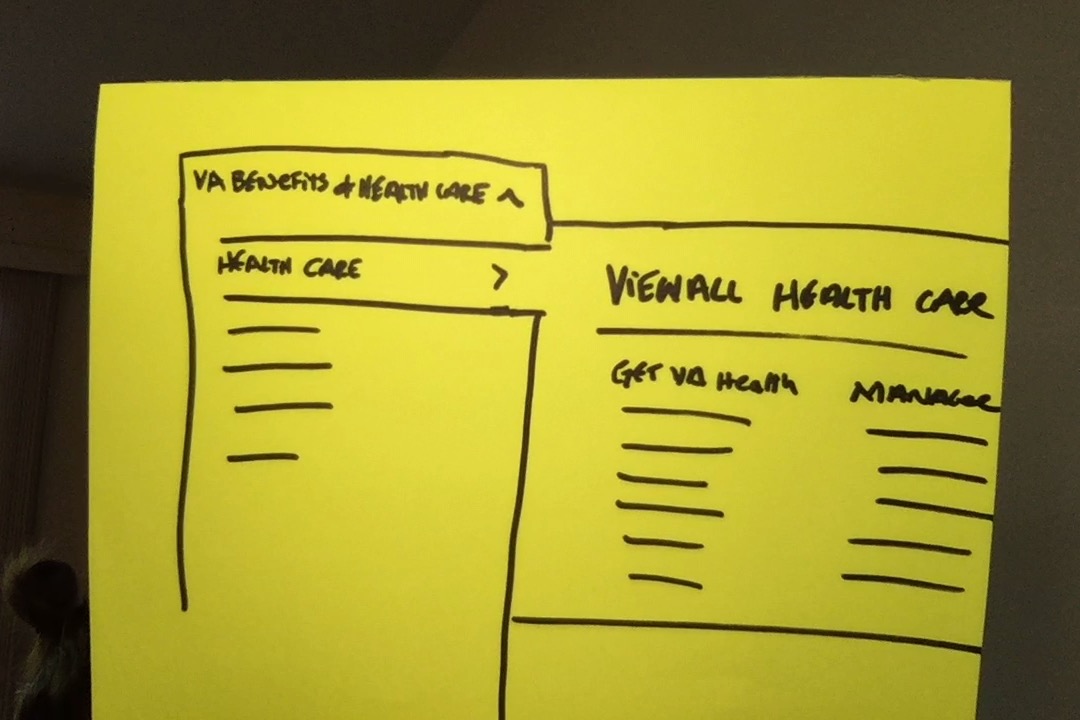 VA BENEFITS & HEALTH CARE ^
HEALTH CARE >
VIEW ALL HEALTH CARE
GET VA Health
MANAGE